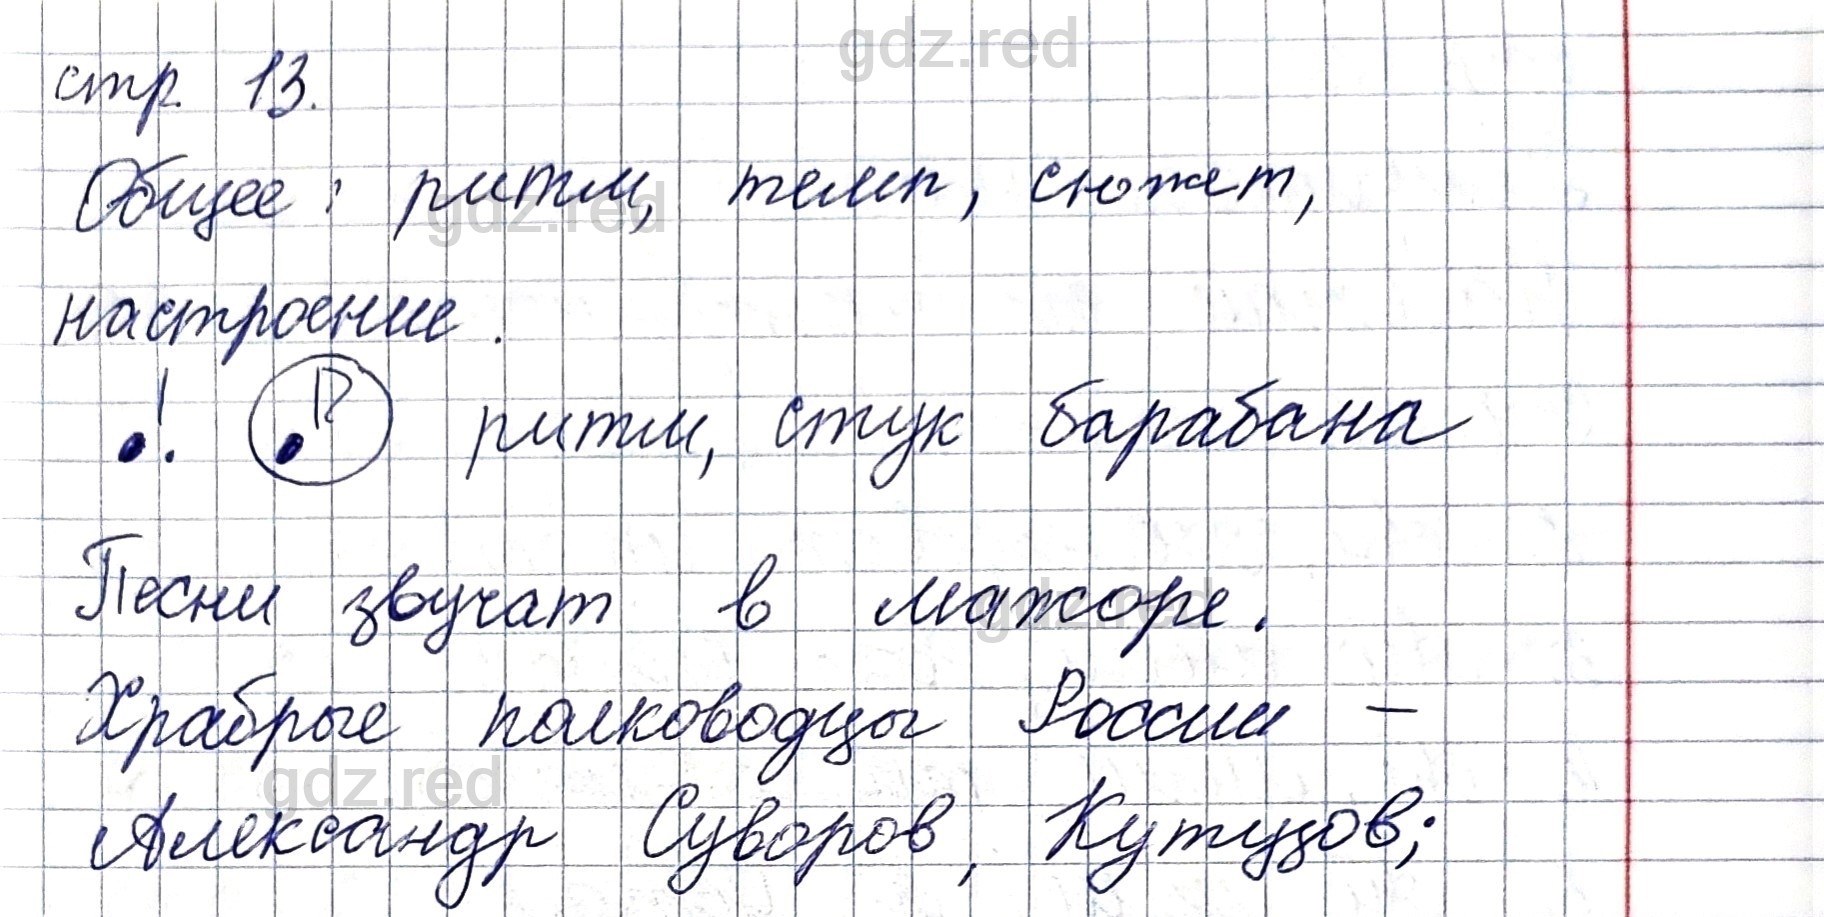 gdz.red
стр. 13.
Общее: ритм, темп, сюжет,
gdz.red
настроение.
! ритм, стук барабана
Песни звучат в мажоре.
gdz.red
Храбрые полководцы России –
gdz.red
Александр Суворов, Кутузов;